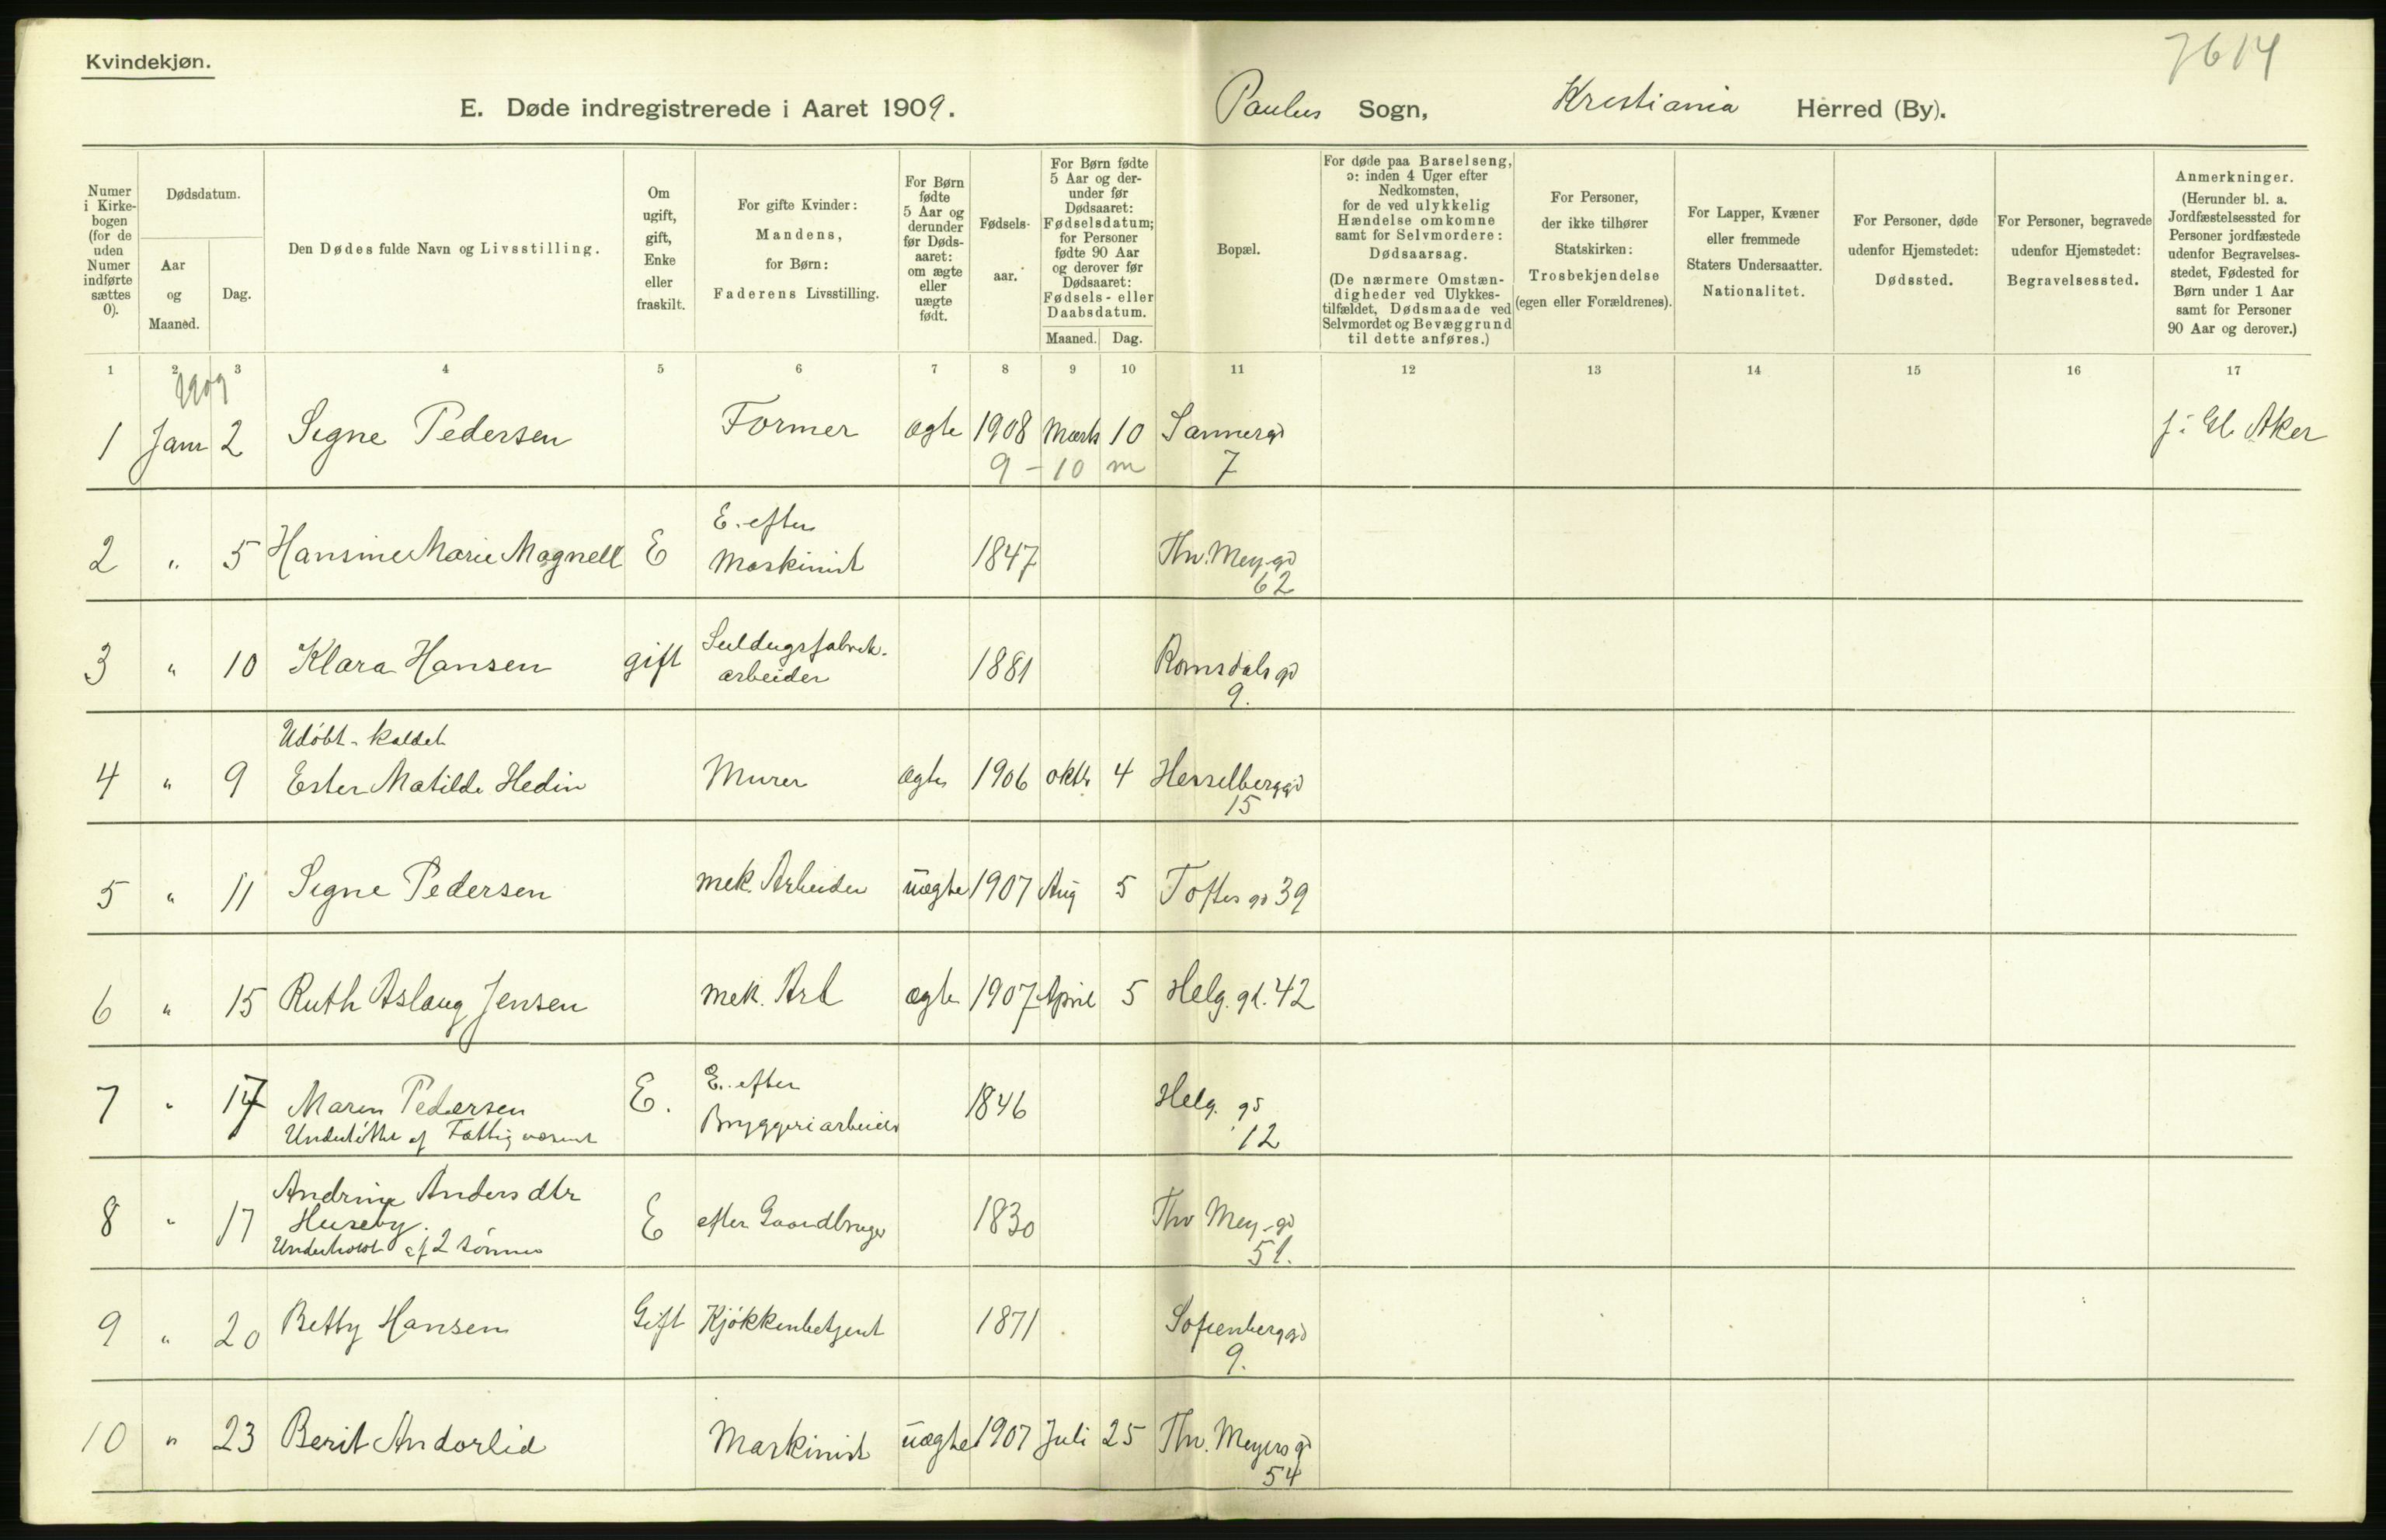 Kvindekjøn.
7614
E. Døde indregistrerede i Aaret 1909. Paulus Sogn, Kristiania Herred (By).
Numer i Kirke-bogen (for de uden Numer indførte sættes 0).
Dødsdatum.
Aar og Maaned.
Dag.
Den Dødes fulde Navn og Livsstilling.
Om ugift, gift, Enke eller fraskilt.
For gifte Kvinder: Mandens, for Børn: Faderens Livsstilling.
For Børn fødte 5 Aar og derunder før Døds-aaret: om ægte eller uægte født.
Fødsels-aar.
For Børn fødte 5 Aar og der-under før Dødsaaret: Fødselsdatum; for Personer fødte 90 Aar og derover før Dødsaaret: Fødsels- eller Daabsdatum.
Maaned. Dag.
Bopæl.
For døde paa Barselseng, ɔ: inden 4 Uger efter Nedkomsten, for de ved ulykkelig Hændelse omkomne samt for Selvmordere: Dødsaarsag.
(De nærmere Omstæn-digheder ved Ulykkes-tilfældet, Dødsmaade ved Selvmordet og Bevæggrund til dette anføres.)
For Personer, der ikke tilhører Statskirken: Trosbekjendelse (egen eller Forældrenes).
For Lapper, Kvæner eller fremmede Staters Undersaatter. Nationalitet.
For Personer, døde udenfor Hjemstedet: Dødssted.
For Personer, begravede udenfor Hjemstedet: Begravelsessted.
Anmerkninger.
(Herunder bl. a. Jordfæstelsessted for Personer jordfæstede udenfor Begravelses-stedet, Fødested for Børn under 1 Aar samt for Personer 90 Aar og derover.)
1 2 3 4 5 6 7 8 9 10 11 12 13 14 15 16 17
1909
1 Jan 2 Signe Pedersen Former ægte 1908 Marts 10 Sannergd f. i Gl. Aker
9 - 10 m 7
E. efter
2 " 5 Hansine Marie Magnell E Maskinist 1847 Thv. Mey. gd
62
3 " 10 Klara Hansen gift Seildugsfabrik-arbeider 1881 Romsdals gd
9.
Udøbt - kaldet
4 " 9 Ester Matilde Hedin Murer ægte 1906 oktb 4 Hesselberggd
15
5 " 11 Signe Pedersen mek. Arbeider uægte 1907 Aug 5 Toftes gd 39
6 " 15 Ruth Aslaug Jensen mek. Arb ægte 1907 April 5 Helg. gd. 42
E. efter
7 " 17 Maren Pedersen E. Bryggeriarbeider 1846 Helg. gd
Understøttet af Fattigvæsenet 12
Andrine Andersdtr
8 " 17 Huseby. E efter Gaardbruger 1830 Thv Mey. gd
Underholdt af 2 sønner 51.
9 " 20 Betty Hansen Gift Kjøkkenbetjent 1871 Sofienberggd
9.
10 " 23 Berit Andorlid Maskinist uægte 1907 Juli 25 Thv. Meyers gd
54